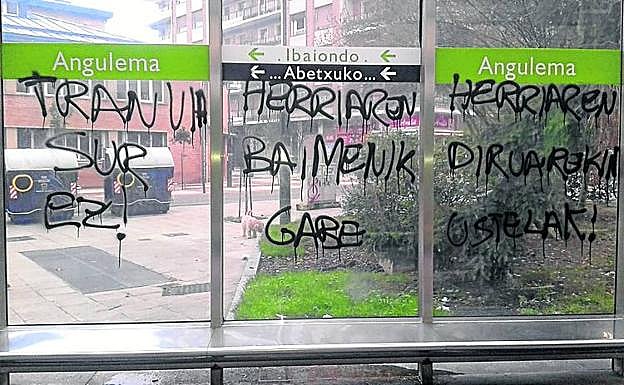 Angulema
Ibaiondo
... Abetxuko ...
Angulema
TRANVIA
SUR
EZ!
HERRIAREN
BAIMENIK
GABE
HERRIAREN
DIRUAREKIN
USTELAK!